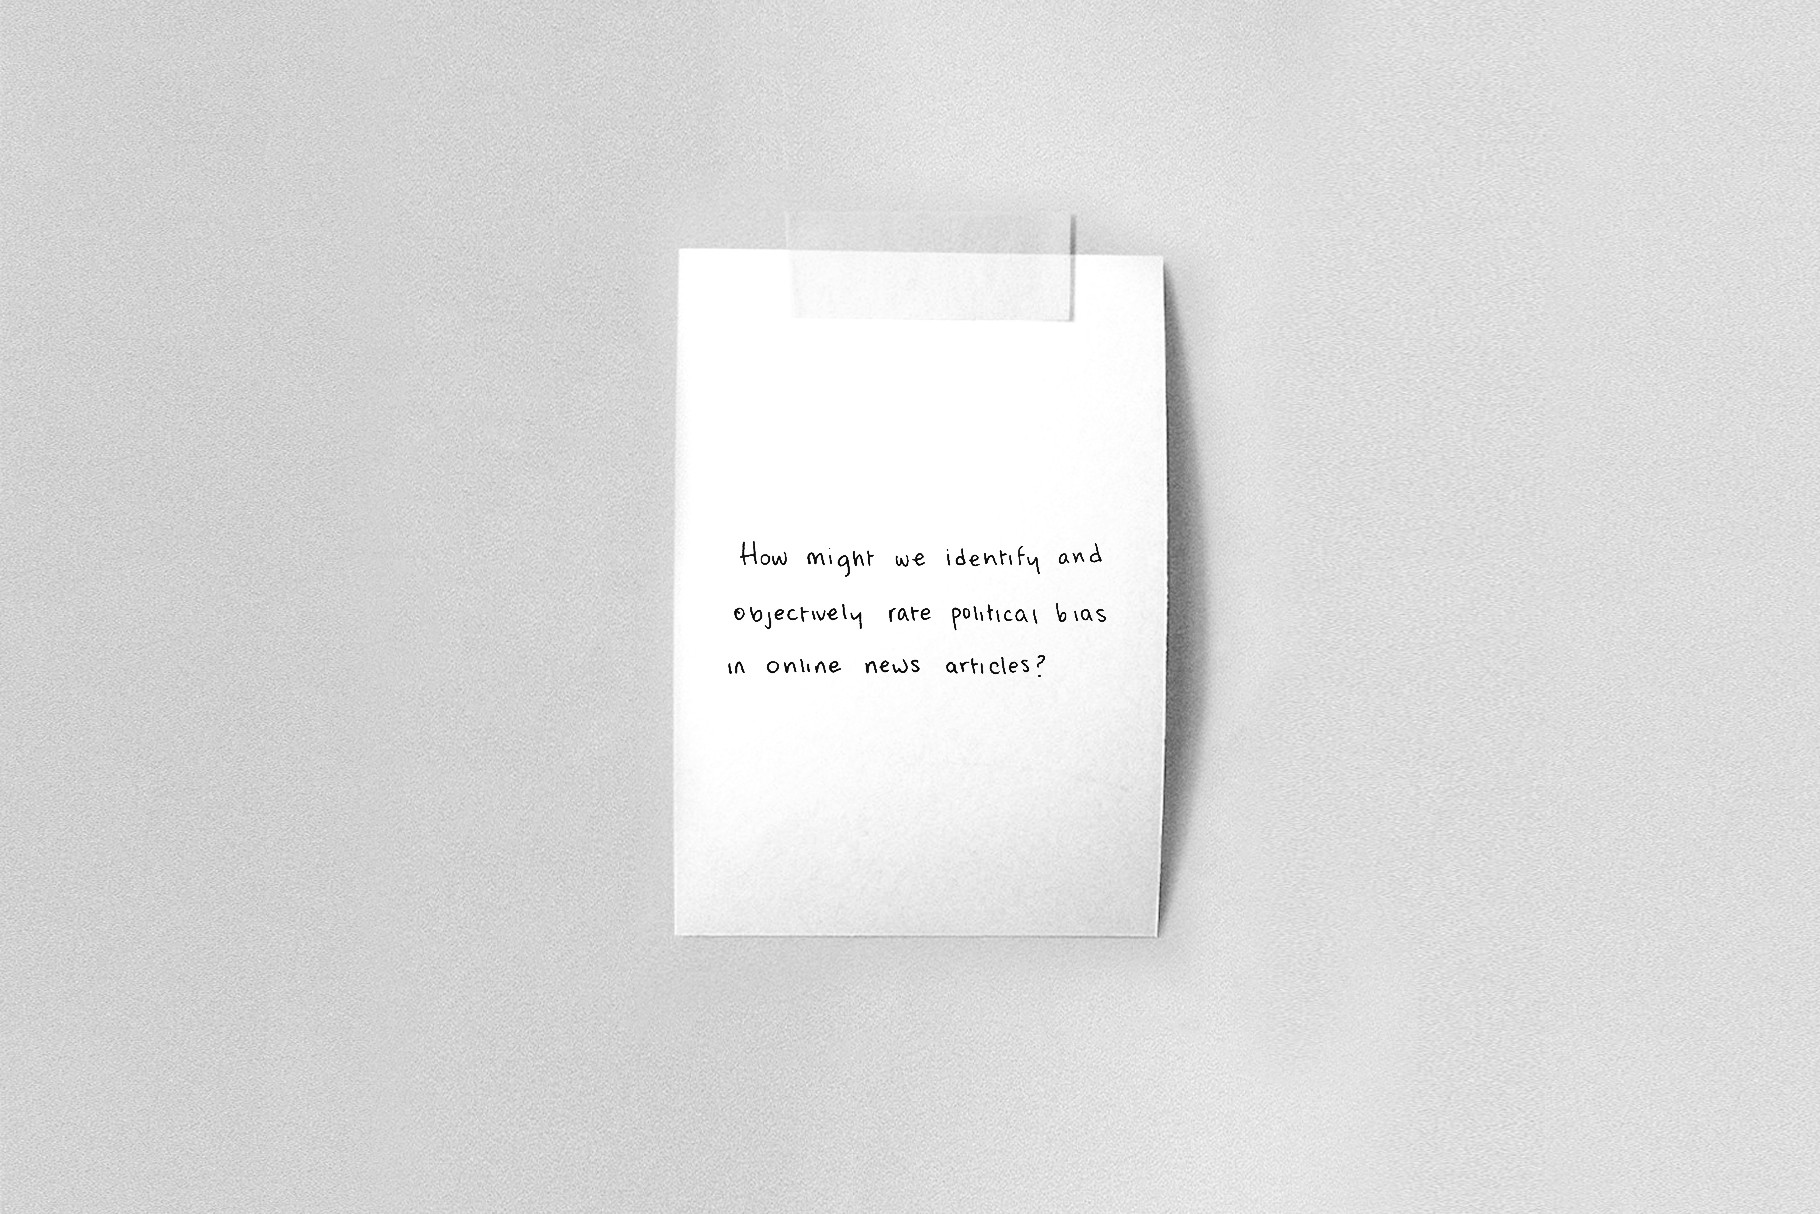 How might we identify and
objectively rate political bias
in online news articles?